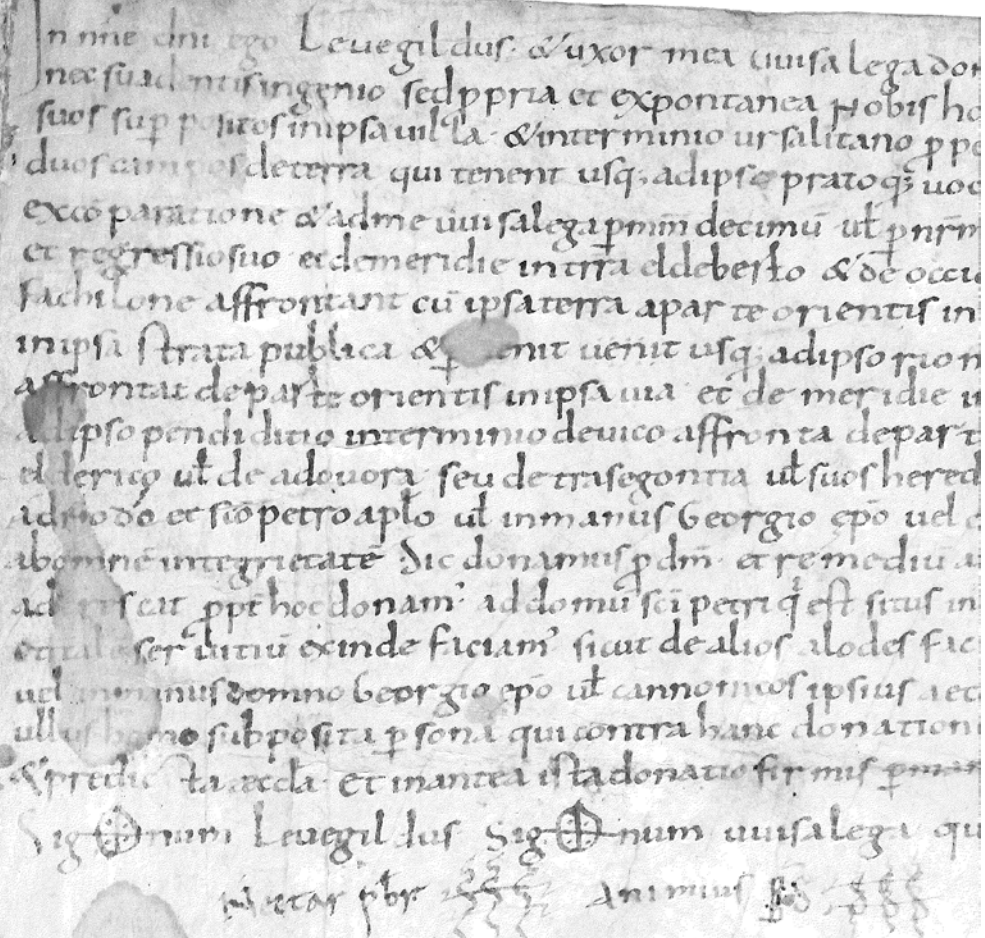 In nñe dñi ego Levegildus · & uxor mea vvisalega don
nec suadentis ingenio sed ppria et expontanea nobis ho
suos sup positos in ipsa villa · & in terminio ursalitano p pe
duos campos de terra qui tenent usq; ad ipso prato q; voc
excōparatione & ad me vvisalega p mm̄ decimū vł p nr̄m
et regressio suo · et de meridie in tr̄ra eldeberto & de occi
fachilone affrontant cū ipsa terra a parte orientis in
in ipsa strata publica & venit usq; ad ipso rio
affrontat de parte orientis in ipsa via et de meridie in
ad ipso pendiditio in terminio de vico affronta de part
elderico vł de adovora seu de trasegontia vł suos hered
et scō petro apło vł in manus Georgio ep̄o vel
ab omnē integrietatē Sic donamus p dm̄ et remediū a
ppt hoc donam' ad domū sc̄i petri q est situs in
servitiū exinde faciam' sicut de alios alodes fac
vel in manus domno Georgio ep̄o vł cannonicos ipsius aec
ullus homo subposita psona qui contra hanc donation
& predicta aeccła · Et in antea ista donatio firmis pman
Sig num Levegildus Sig num vvisalega qu
pbr Animius